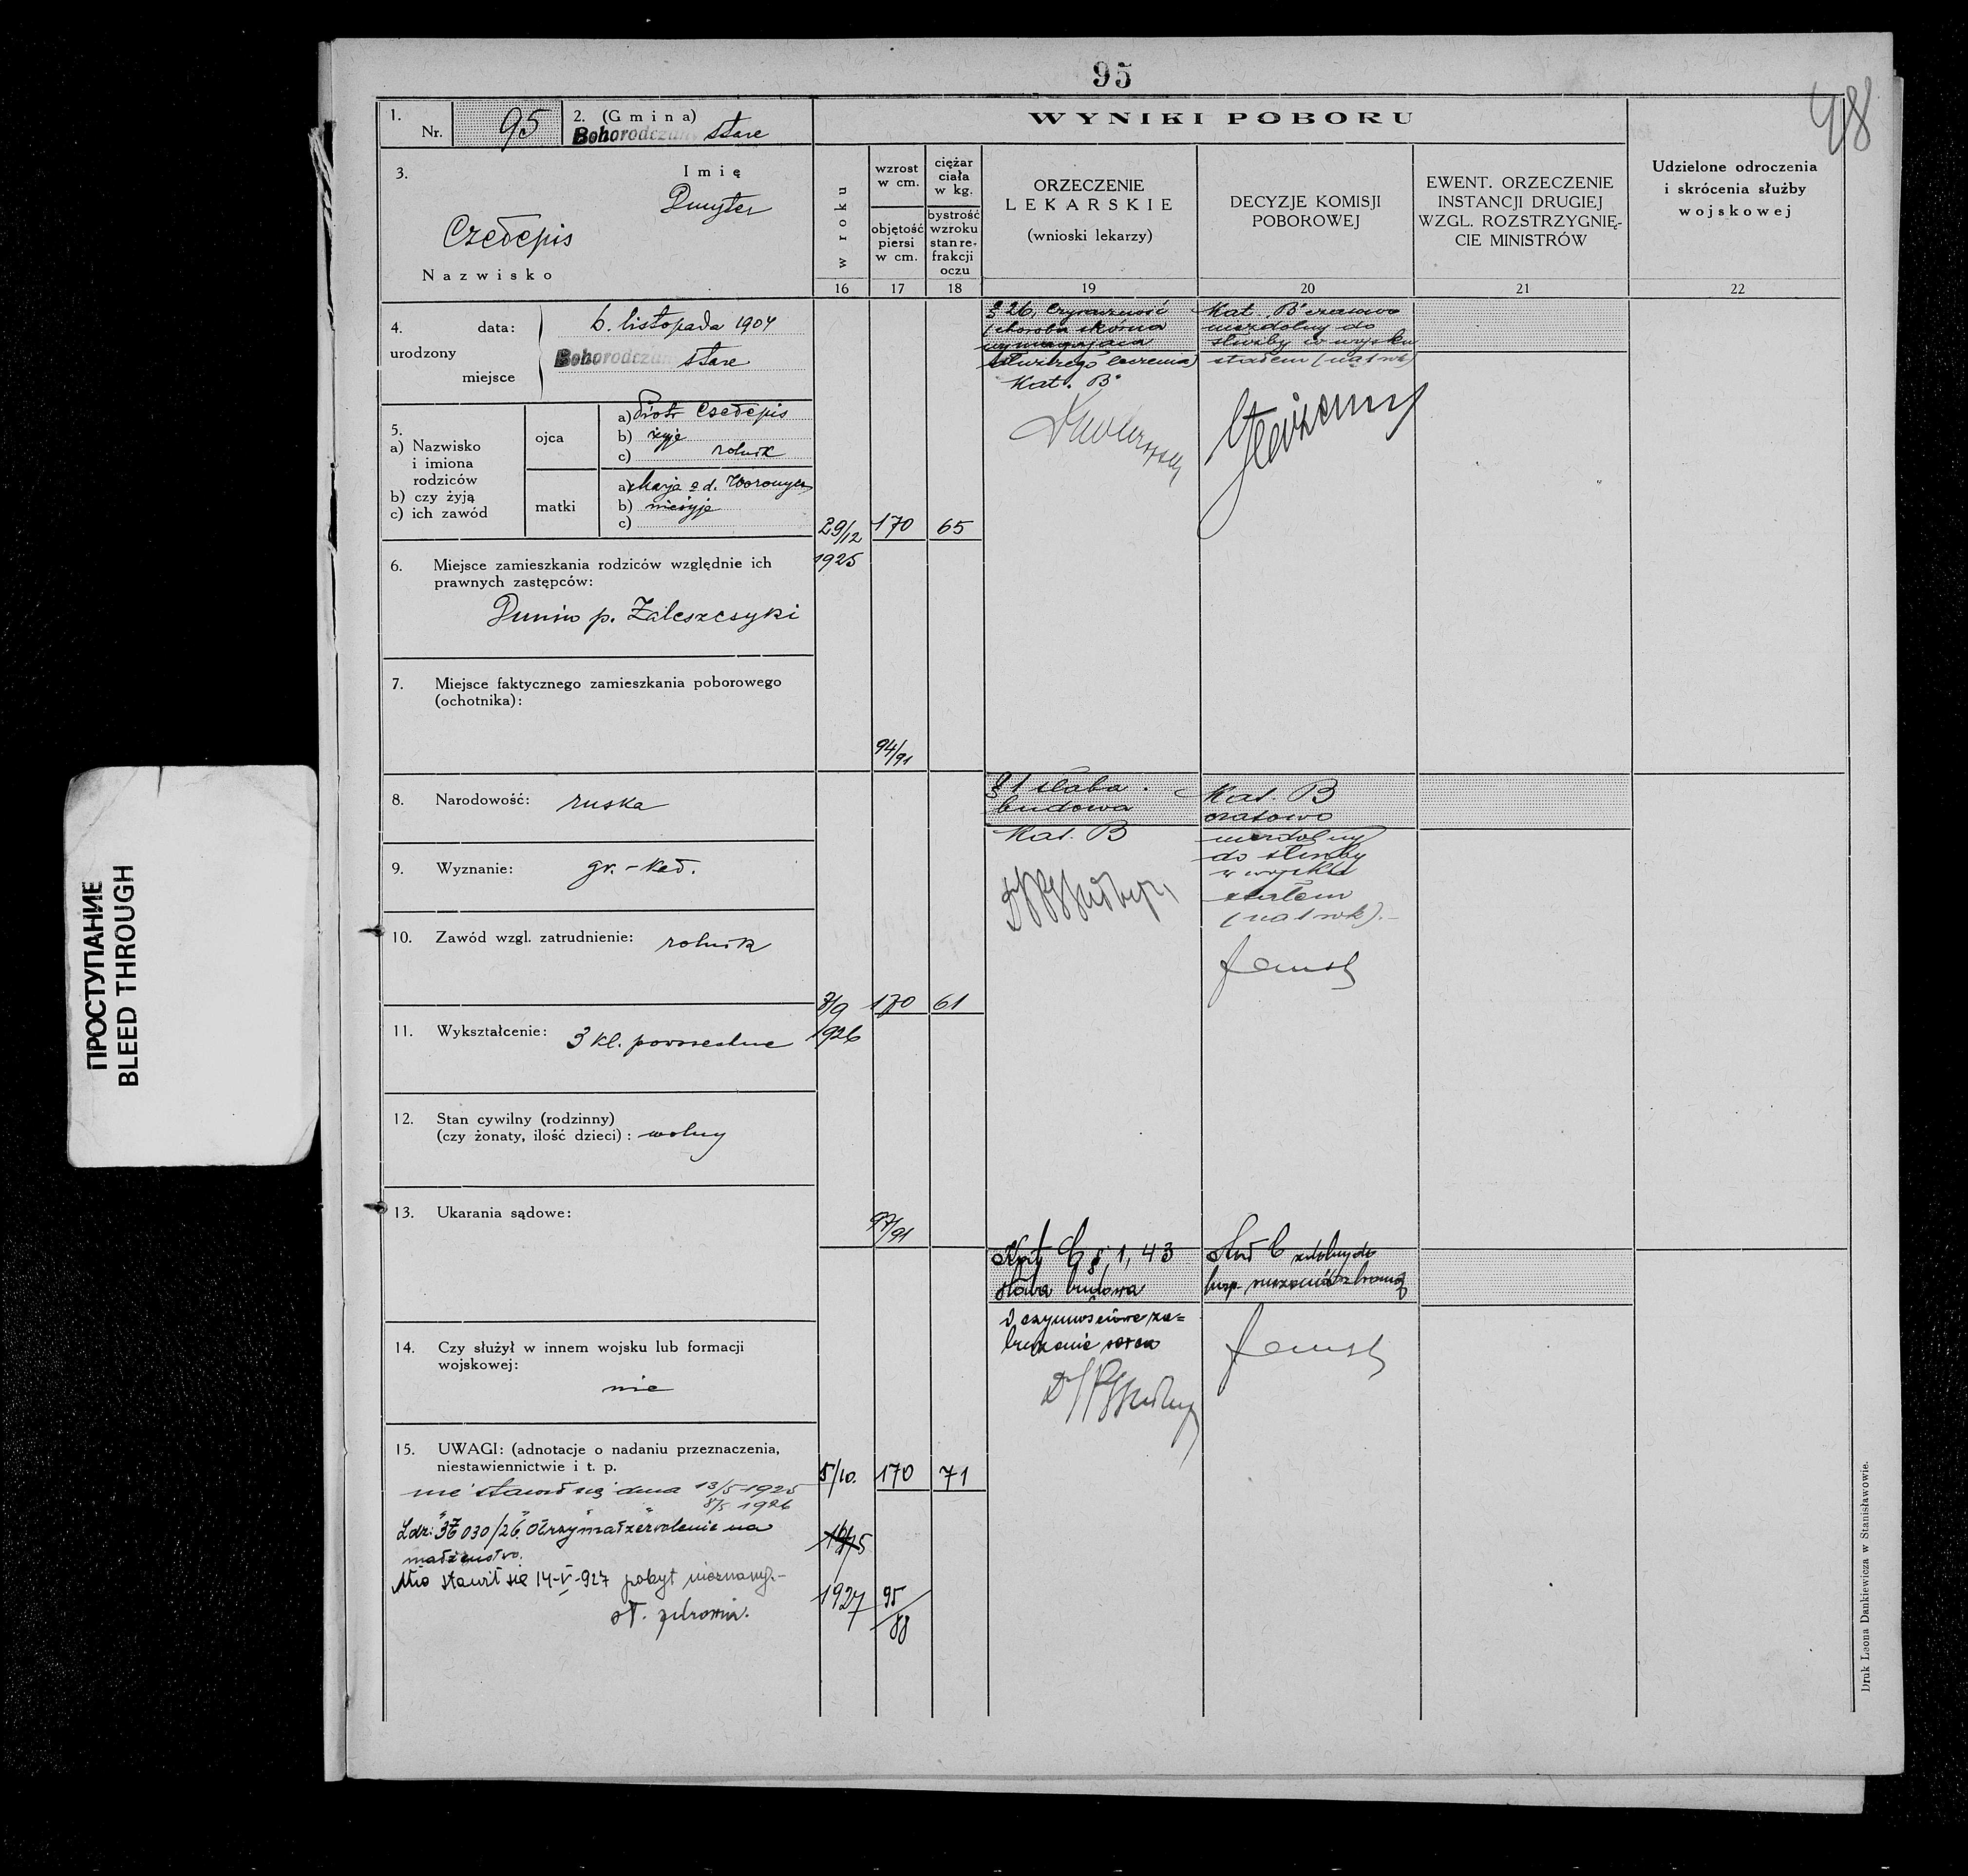 95
48
1.
Nr. 95
2. (Gmina)
Bohorodczany stare
WYNIKI POBORU
3.
Imię
Dmyter
Czełepis
Nazwisko
w roku
wzrost w cm.
objętość piersi w cm.
ciężar ciała w kg.
bystrość wzroku stan re-frakcji oczu
ORZECZENIE
LEKARSKIE
(wnioski lekarzy)
DECYZJE KOMISJI
POBOROWEJ
EWENT. ORZECZENIE
INSTANCJI DRUGIEJ
WZGL. ROZSTRZYGNIĘ-
CIE MINISTRÓW
Udzielone odroczenia
i skrócenia służby
wojskowej
16 17 18 19 20 21 22
4. urodzony
data: 6. listopada 1904
miejsce Bohorodczany stare
5.
a) Nazwisko
i imiona
rodziców
b) czy żyją
c) ich zawód
ojca
a) Piotr Czełepis
b) żyje
c) rolnik
matki
a) Marja
b) nieżyje
c)
6. Miejsce zamieszkania rodziców względnie ich
prawnych zastępców:
p. Zaleszczyki
7. Miejsce faktycznego zamieszkania poborowego
(ochotnika):
8. Narodowość: ruska
9. Wyznanie: gr.-kat.
10. Zawód wzgl. zatrudnienie: rolnik
11. Wykształcenie: 3 kl. powszechne
12. Stan cywilny (rodzinny)
(czy żonaty, ilość dzieci): wolny
13. Ukarania sądowe:
14. Czy służył w innem wojsku lub formacji
wojskowej:
nie
15. UWAGI: (adnotacje o nadaniu przeznaczenia,
niestawiennictwie i t. p.
nie stawił się dnia 13/5 1925
" " " 8/5 1926
030/26 otrzymał zezwolenie na
małżeństwo.
Nie stawił się 14-V-927 pobyt nieznany.-
29/12 170 65
1925
94/91
§ 26,
choroba skórna
wymagająca
dłuższego leczenia)
Kat. B"
Kat. "B" czasowo
niezdolny do
służby w wojsku
stałem (na 1 rok)
7/9 170 61
1926
97/91
§ 1 słaba
budowa
Kat. B
Kat. B
czasowo
niezdolny
do służby
w wojsku
stałem
(na 1 rok).-
5/10. 170 71
1927 95/88
Kat C § 1, 43
słaba budowa
i czynnościowe za=
burzenie serca
Kat C zdolny do
służ.
Druk Leona Dankiewicza w Stanisławowie.
ПРОСТУПАНИЕ
BLEED THROUGH